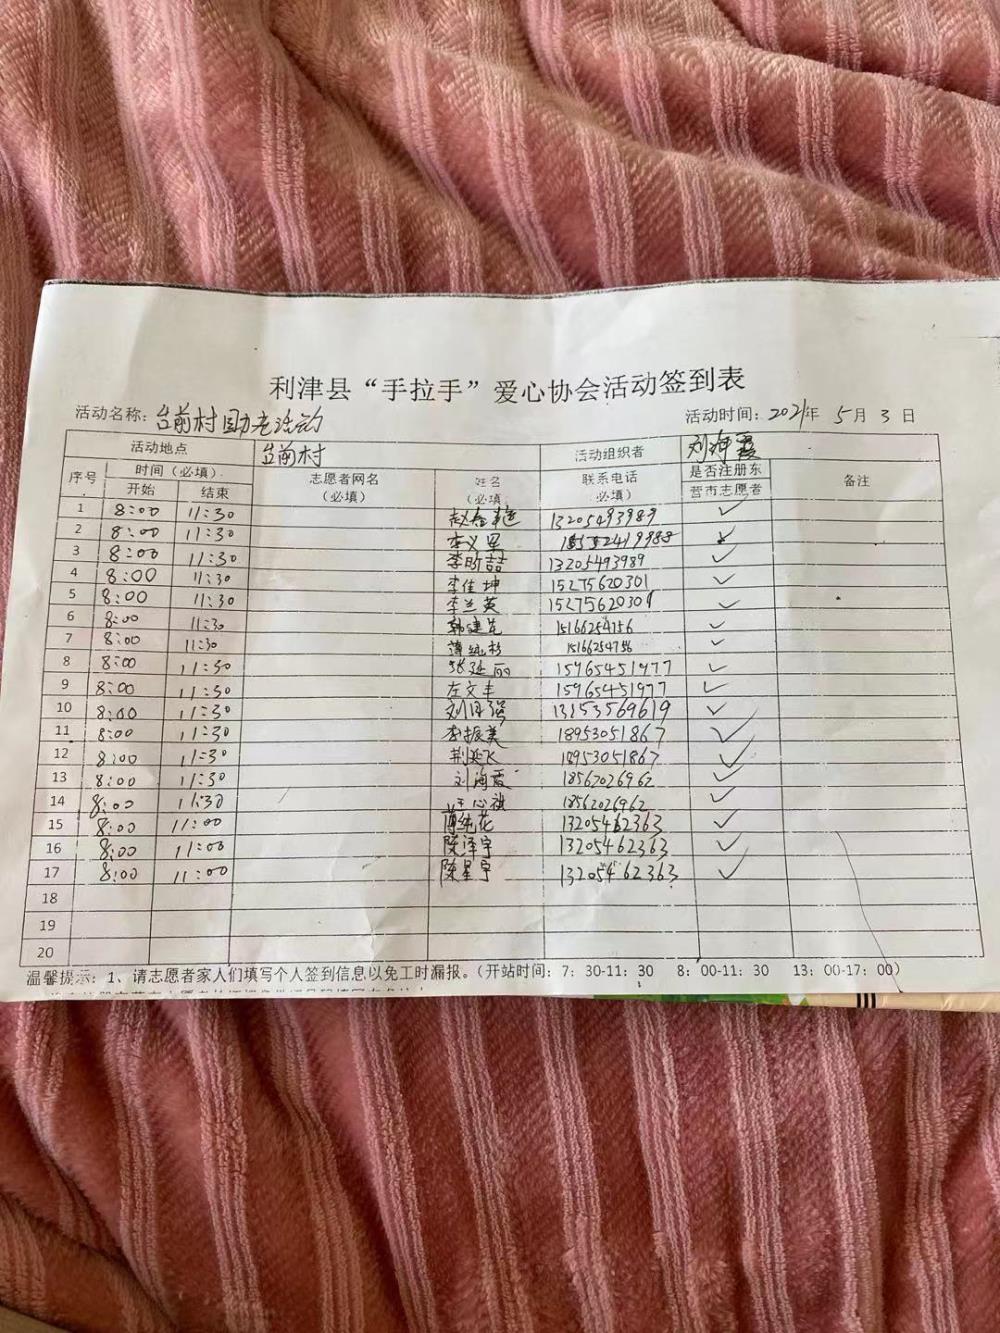 利津县“手拉手”爱心协会活动签到表
活动名称：台前村助老活动 活动时间：2021年5月3日
活动地点 台前村 活动组织者 刘海霞
序号 时间（必填） 志愿者网名（必填） 姓名（必填 联系电话（必填） 是否注册东营市志愿者 备注
开始 结束
1 8:00 11:30 13205493989 ✓
2 8:00 11:30 李义军
3 8:00 11:30 李昕喆 13205493989 ✓
4 8:00 11:30 李佳坤 15275620301 ✓
5 8:00 11:30 李兰英 15275620301 ✓
6 8:00 11:30 韩建先 15166254756 ✓
7 8:00 11:30 薄纯杉 15166254756 ✓
8 8:00 11:30 张延丽 15965451977 ✓
9 8:00 11:30 左文丰 15965451977 ✓
10 8:00 11:30 13153569619 ✓
11 8:00 11:30 李振美 18953051867 ✓
12 8:00 11:30 荆延飞 18953051867 ✓
13 8:00 11:30 刘海霞 18562026962 ✓
14 8:00 11:30 王心祺 18562026962 ✓
15 8:00 11:00 薄纯花 13205462363 ✓
16 8:00 11:00 陈泽宇 13205462363 ✓
17 8:00 11:00 陈星宇 13205462363 ✓
18
19
20
温馨提示：1、请志愿者家人们填写个人签到信息以免工时漏报。（开站时间：7：30-11：30 8：00-11：30 13：00-17：00）